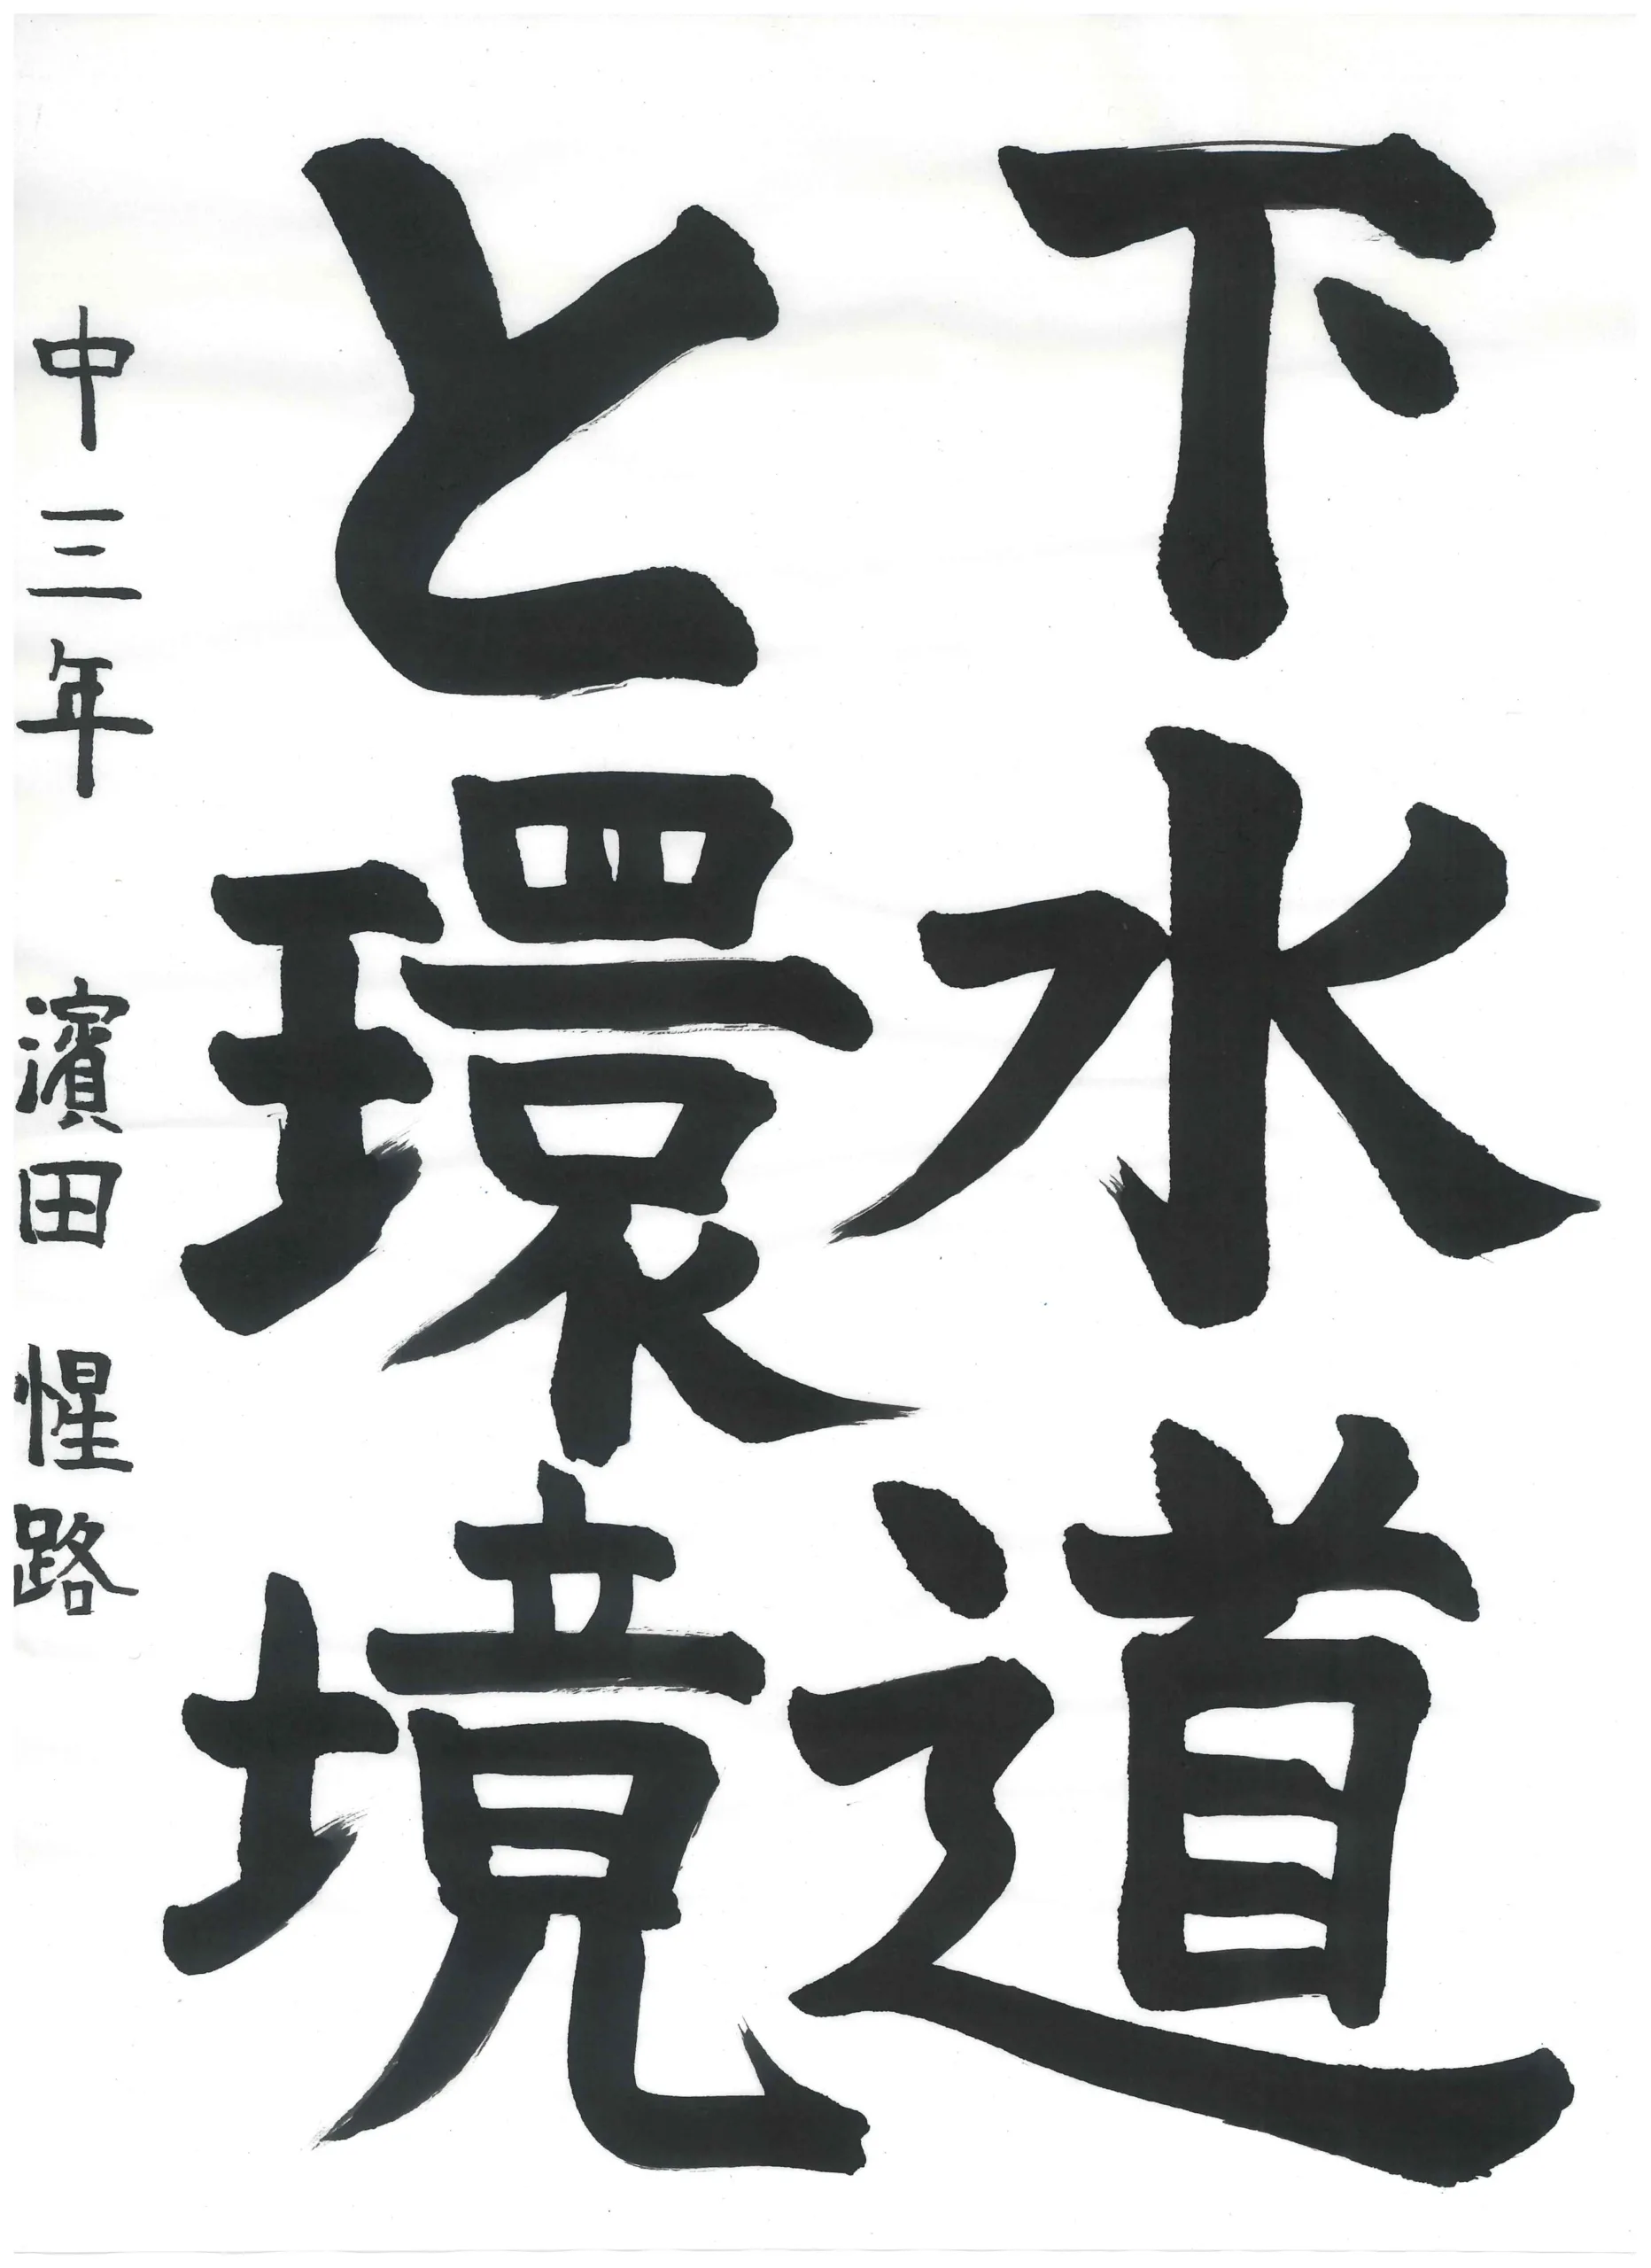 下水道
と環境
中三年 濱田惺路